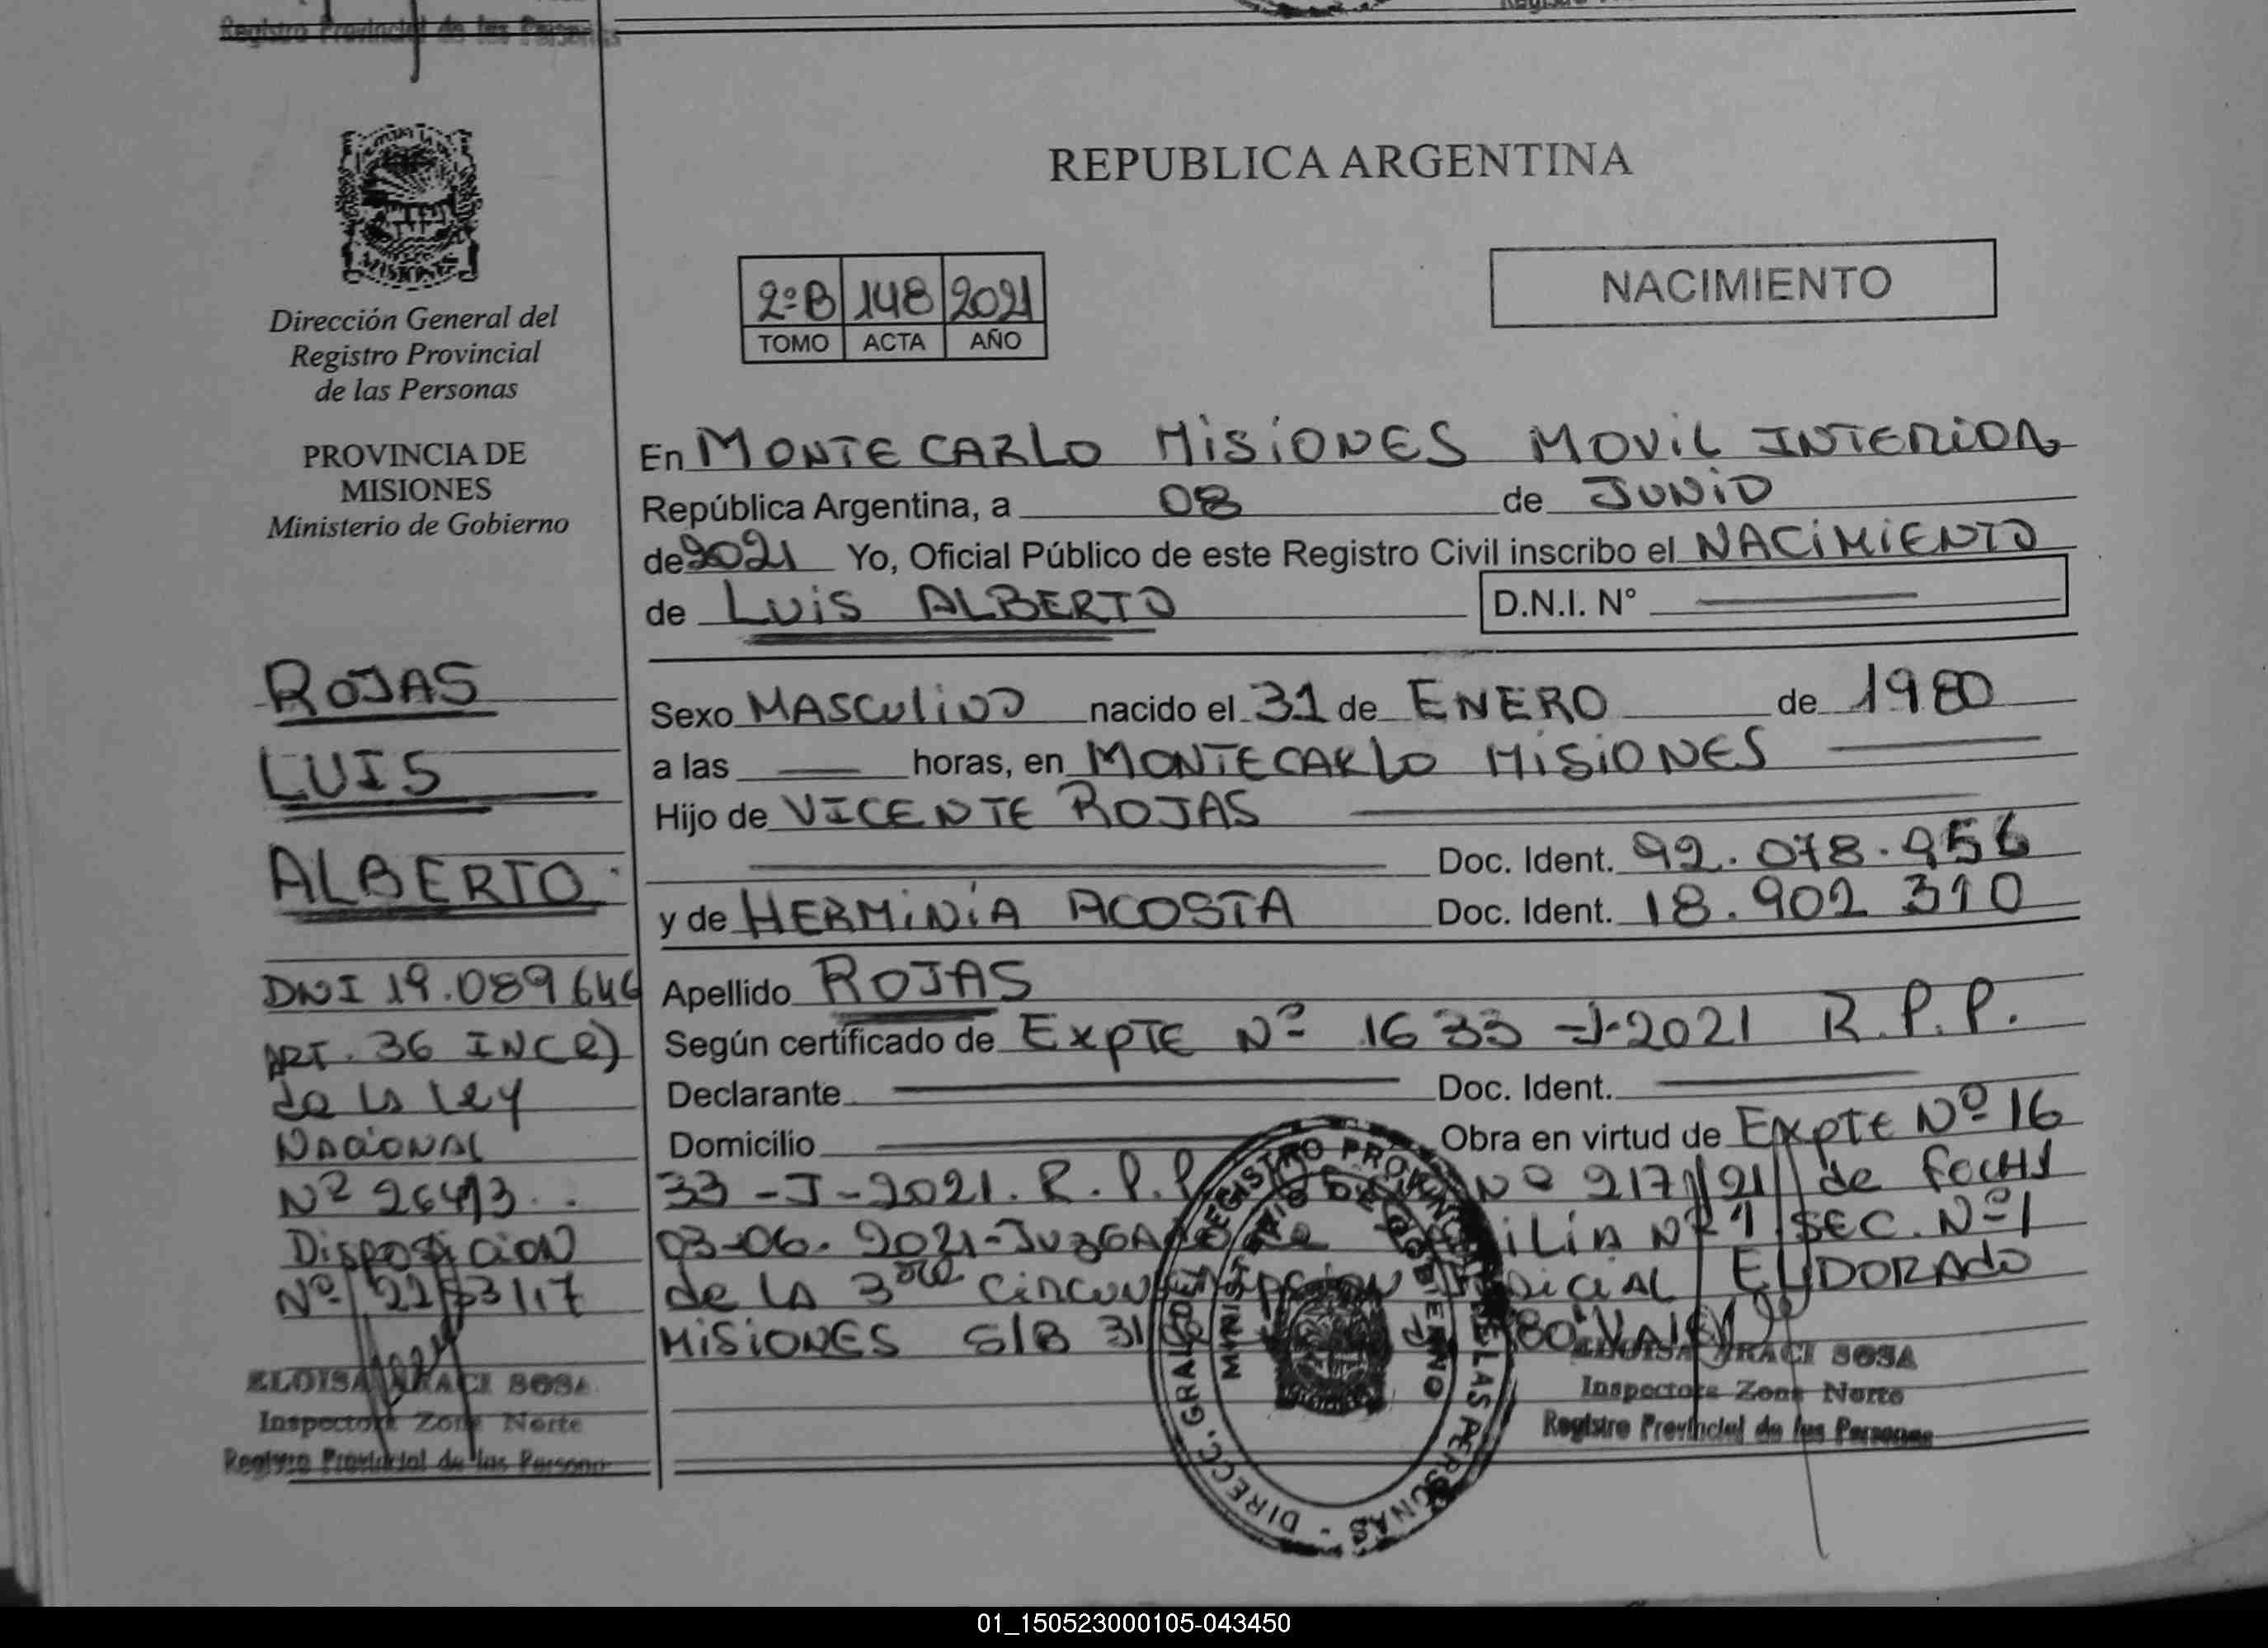 Registro Provincial de las Personas
Dirección General del
Registro Provincial
de las Personas
PROVINCIA DE
MISIONES
Ministerio de Gobierno
ROJAS
LUIS
ALBERTO
DNI 19.089646
ART. 36 INC e)
de la Ley
Nacional
Nº 26413
Disposicion
Nº 2253/17
ELOISA ARACI SOSA
Inspectora Zona Norte
Registro Provincial de las Personas
REPUBLICA ARGENTINA
2ºB 148 2021
TOMO ACTA AÑO
NACIMIENTO
En MONTECARLO MISIONES MOVIL INTERIOR
República Argentina, a 08 de JUNIO
de 2021 Yo, Oficial Público de este Registro Civil inscribo el NACIMIENTO
de LUIS ALBERTO D.N.I. N°
Sexo MASCULINO nacido el 31 de ENERO de 1980
a las horas, en MONTECARLO MISIONES
Hijo de VICENTE ROJAS
Doc. Ident. 92.078.956
y de HERMINIA ACOSTA Doc. Ident. 18.902 310
Apellido ROJAS
Según certificado de EXPTE Nº 1633-J-2021 R.P.P.
Declarante Doc. Ident.
Domicilio Obra en virtud de EXPTE Nº 16
33-J-2021. R.P.P Nº 217/21 de fecha
03-06.2021-JUZGADO DE FAMILIA Nº 1 SEC. Nº 1
de la 3era CIRCUNSCRIPCION JUDICIAL ELDORADO
MISIONES S/B 31 80 VALE
ELOISA ARACI SOSA
Inspectora Zona Norte
Registro Provincial de las Personas
DIRECC. GRAL. DEL REGISTRO PROVINCIAL DE LAS PERSONAS -
MINISTERIO DE GOBIERNO
MISIONES
01_150523000105-043450